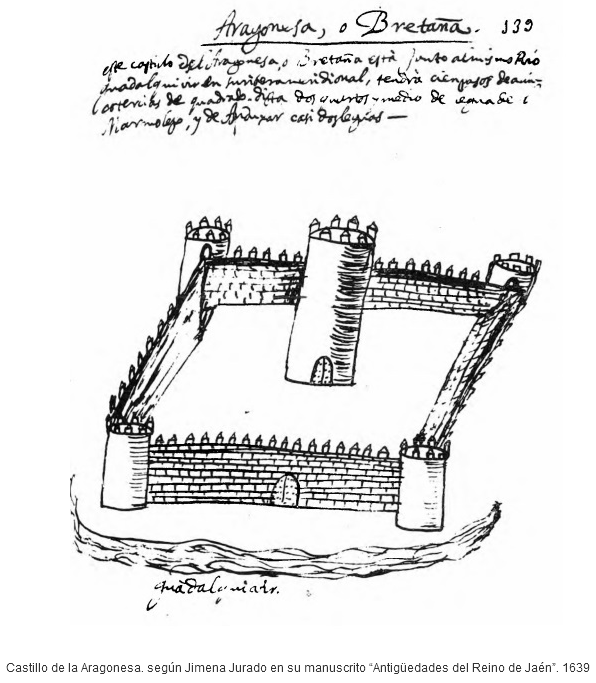 Aragonesa, o Bretaña. 139
este castillo del Aragonesa, o Bretaña está junto al mismo Rio
guadalquivir en su ribera meridional, tendrá cien pasos de
de quadrado. dista dos quartos y medio de legua
Marmolejo, y de Andujar casi dos leguas —
guadalquivir.
Castillo de la Aragonesa. según Jimena Jurado en su manuscrito “Antigüedades del Reino de Jaén”. 1639